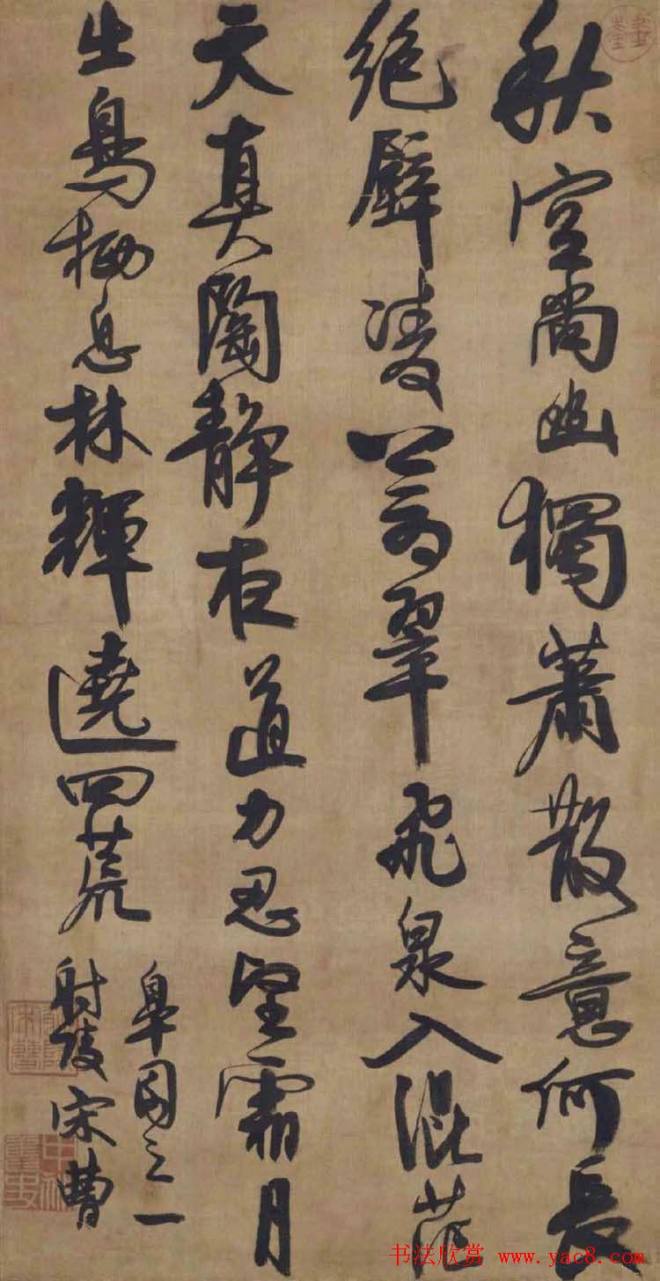 秋空尚幽獨蕭散意何長
絕壁凌蒼翠飛泉入混茫
天真陶靜夜道力忍堅霜月
出鳥栖息林輝遶四荒
皋園之一
射陵宋曹
书法欣赏 www.yac8.com